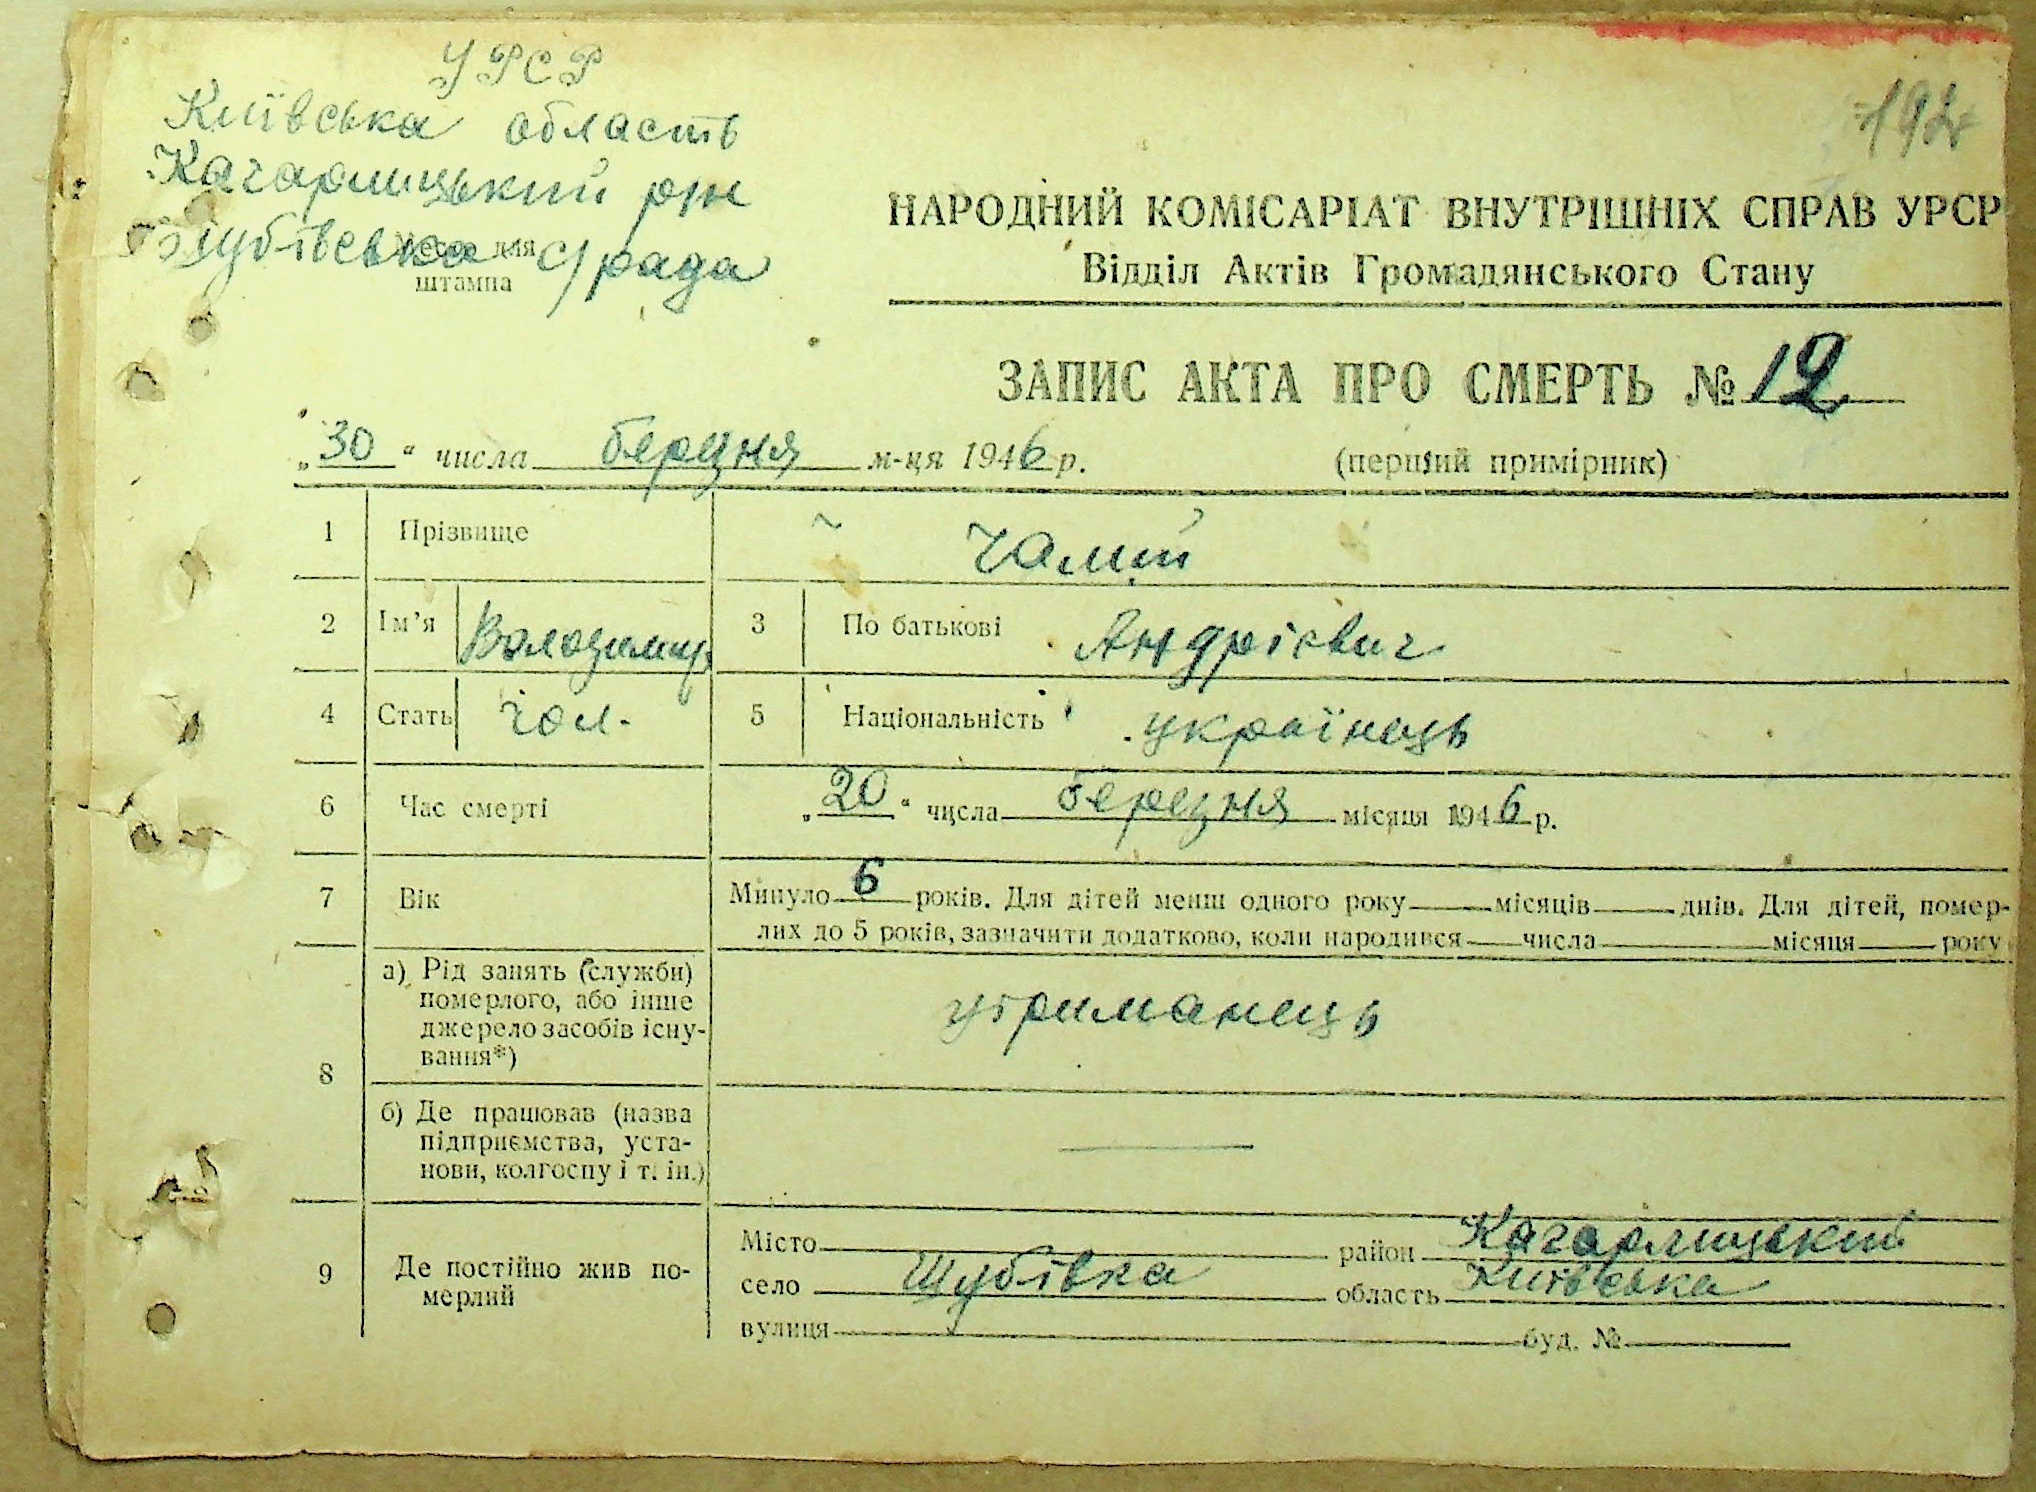 УРСР
Київська область
Кагарлицький р/н
Шубівська с/рада
Місце для
штампа
192
НАРОДНИЙ КОМІСАРІАТ ВНУТРІШНІХ СПРАВ УРСР
Відділ Актів Громадянського Стану
ЗАПИС АКТА ПРО СМЕРТЬ № 12
„30“ числа березня м-ця 1946 р. (перший примірник)
1 Прізвище
2 Ім'я Володимир 3 По батькові Андрієвич
4 Стать чол. 5 Національність українець
6 Час смерті „20“ числа березня місяця 1946 р.
7 Вік Минуло 6 років. Для дітей менш одного року місяців днів. Для дітей, помер-
лих до 5 років, зазначити додатково, коли народився числа місяця року
8 а) Рід занять (служби)
померлого, або інше
джерело засобів існу-
вання*)
утриманець
б) Де працював (назва
підприємства, уста-
нови, колгоспу і т. ін.)
9 Де постійно жив по-
мерлий
Місто район Кагарлицький
село Шубівка область Київська
вулиця буд. №